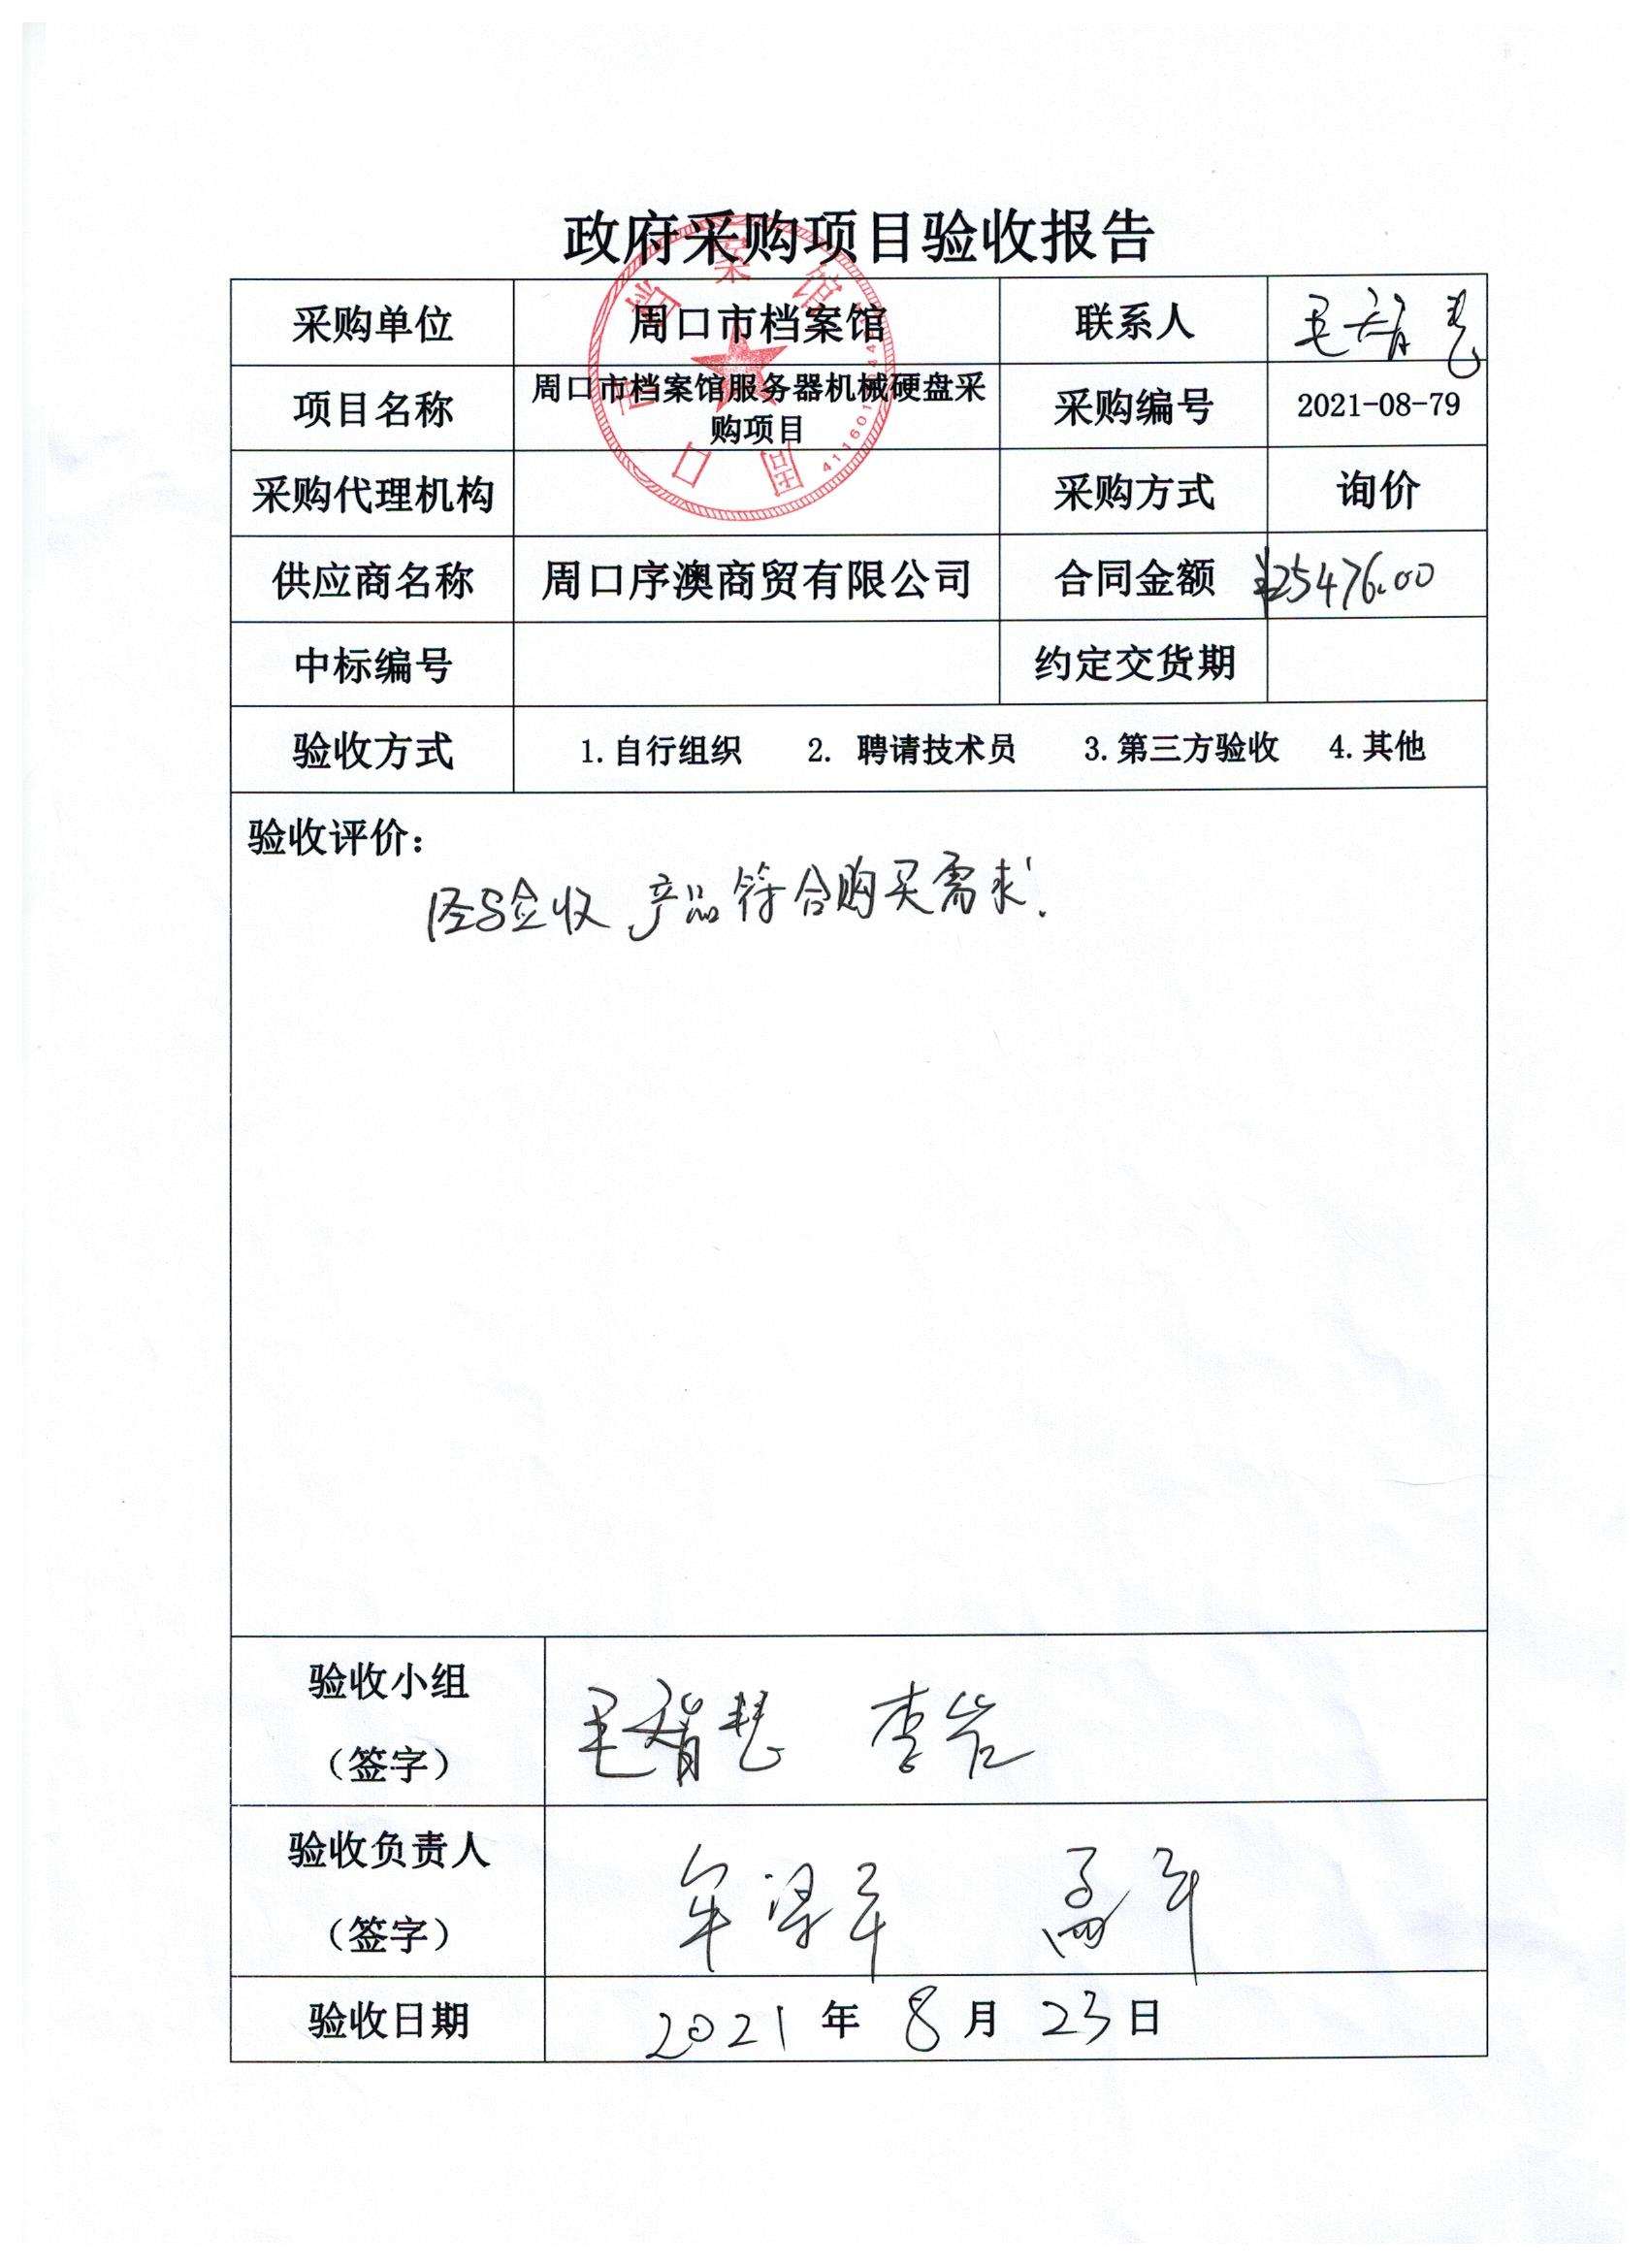 政府采购项目验收报告
采购单位 周口市档案馆 联系人 毛智慧
项目名称 周口市档案馆服务器机械硬盘采
购项目 采购编号 2021-08-79
采购代理机构 采购方式 询价
供应商名称 周口序澳商贸有限公司 合同金额 ¥25476.00
中标编号 约定交货期
验收方式 1.自行组织 2. 聘请技术员 3.第三方验收 4.其他
验收评价：
经验收，产品符合购买需求.
验收小组
（签字） 毛智慧 李岩
验收负责人
（签字）
验收日期 2021 年 8 月 23 日
周口市档案馆